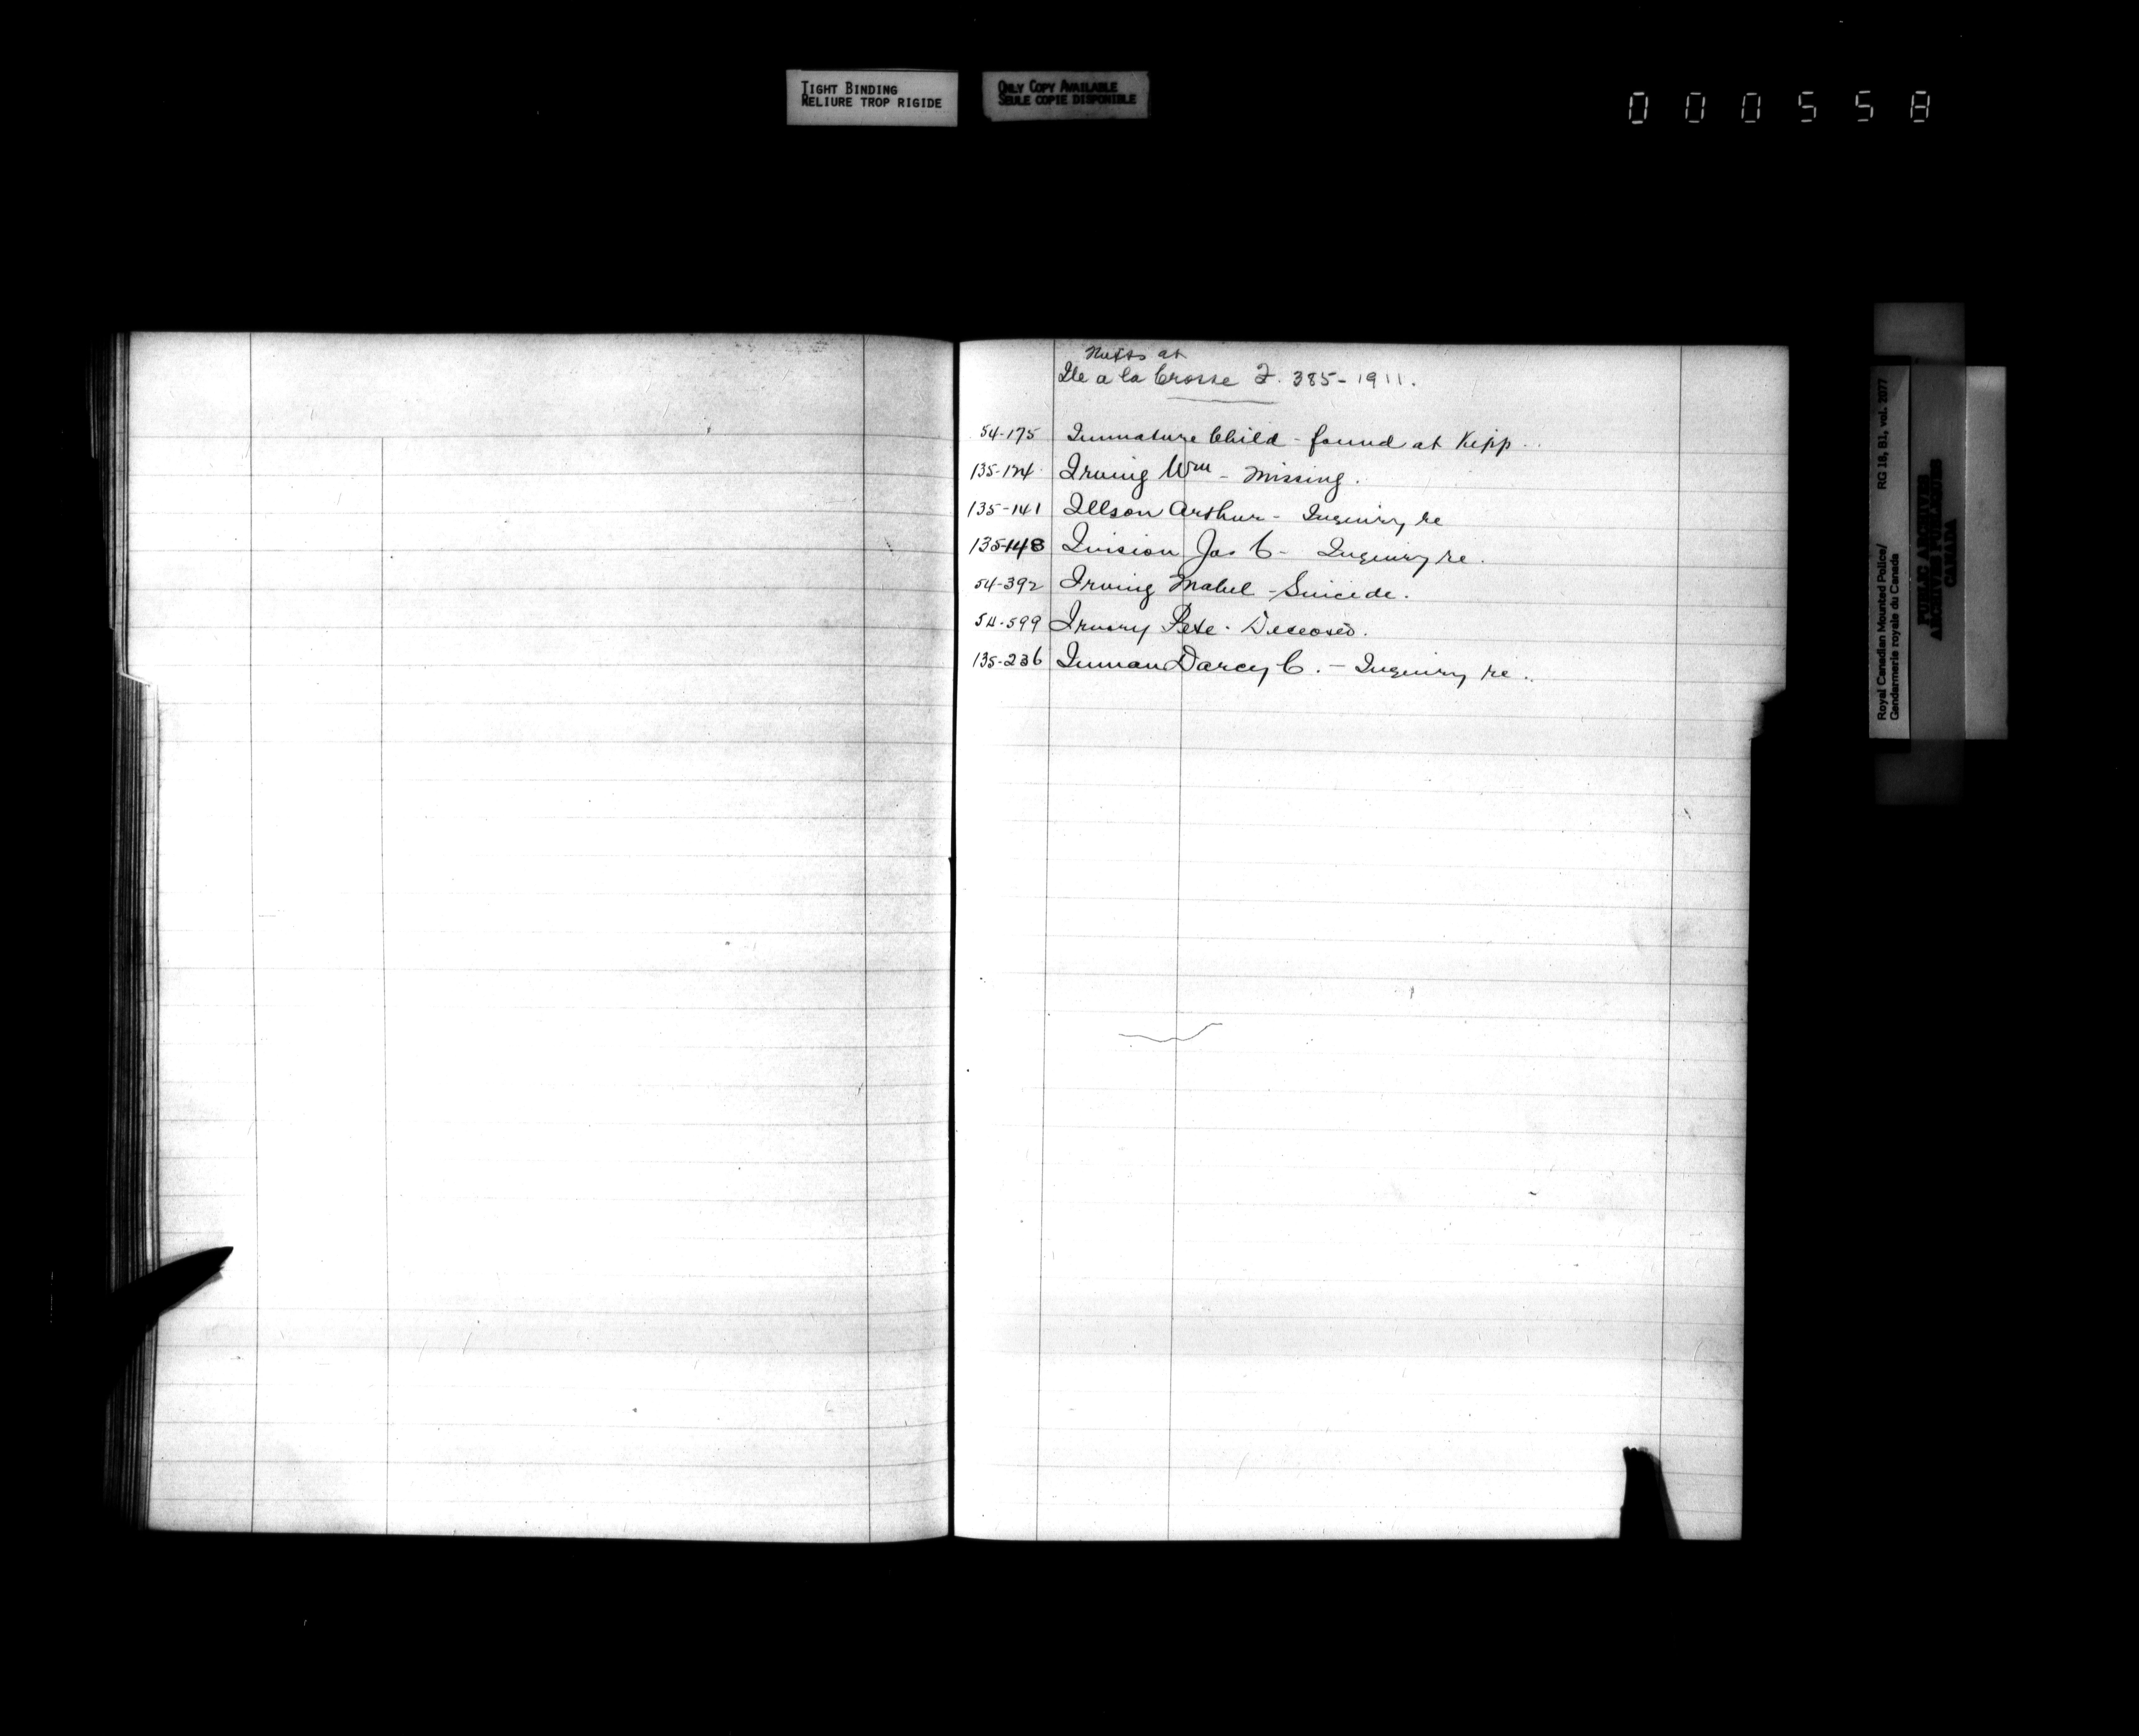 TIGHT BINDING
RELIURE TROP RIGIDE
ONLY COPY AVAILABLE
SEULE COPIE DISPONIBLE
000558
at
Ile a la Crosse F. 385-1911.
54-175 Immature Child - found at Kipp
135-124 Irving Wm - Missing.
135-141 Illson Arthur - Inquiry re
135-148 Jas C - Inquiry re.
54-392 Irving Mabel - Suicide.
54-599 Pete. Deceased.
135-236 Inman Darcy C. - Inquiry re.
Royal Canadian Mounted Police/ RG 18, B1, vol. 2077
Gendarmerie royale du Canada
PUBLIC ARCHIVES
ARCHIVES PUBLIQUES
CANADA